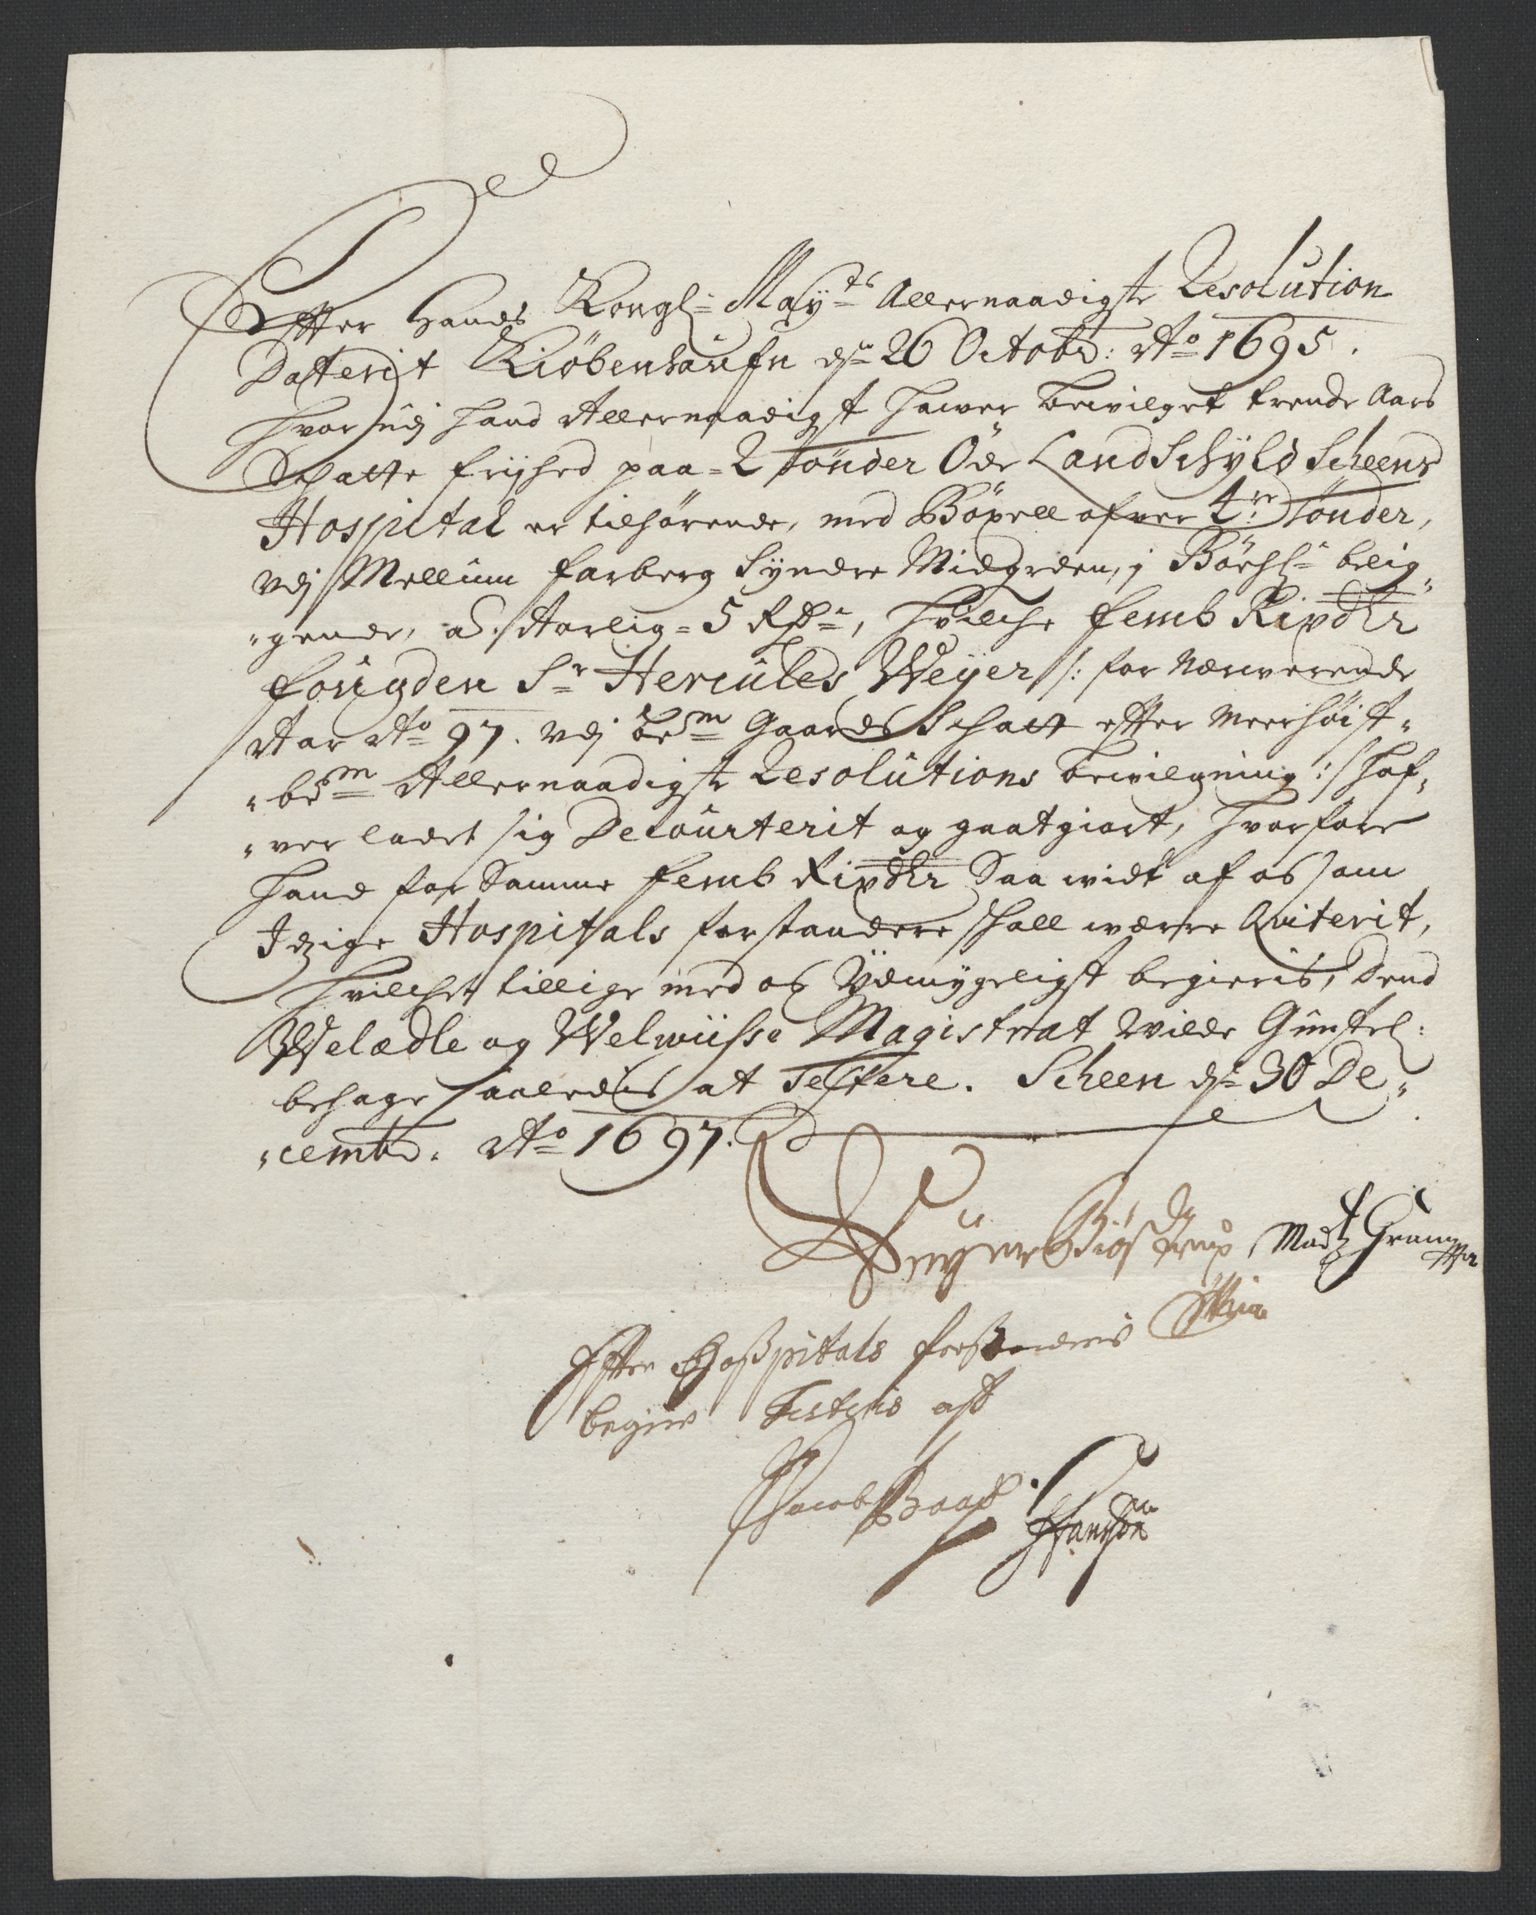 Effter Hands Kongl: Mayts Allernaadigste Resolution
Datterit Kiöbenhaufn d: 26 Octobr: Ao 1695.
Hvor udj hand Allernaadigst hawer bewilget trende Aars
Schatte frijhed paa 2 tönder Öde Landschyld Scheens
Hospital er tilhörende, med Böxell ofver 4re tönder,
vdj Mellum farberg Syndre Midgrden, j Böehl: belig„
„gende, aarlig 5 Rdr, hvilche femb Rixdlr
fougden Sr Hercules Weyer /: for Nærwerende
Aar Ao 97. vdj bem Gaards Schatt effter Meerhöist„
„bem Allernaadigste Resolutions bewilgning :/ haf„
„ver ladet sig Decourterit og gaatgiort, hvorfore
hand for Samme femb Rixdlr Saa widt af os som
Idzige Hospitals forstandere schall wærre Qviterit,
hvilchet tillige med os Ydmygeligst begieris, Dend
Welædle og Welwiisse Magistrat wilde Gunstel:
behage saaledis at Testere. Scheen d: 30 De„
„cembr. Ao 1697.
Madtz
Effter Hosspitals forstanderis
begier Testeris aff
Jacob